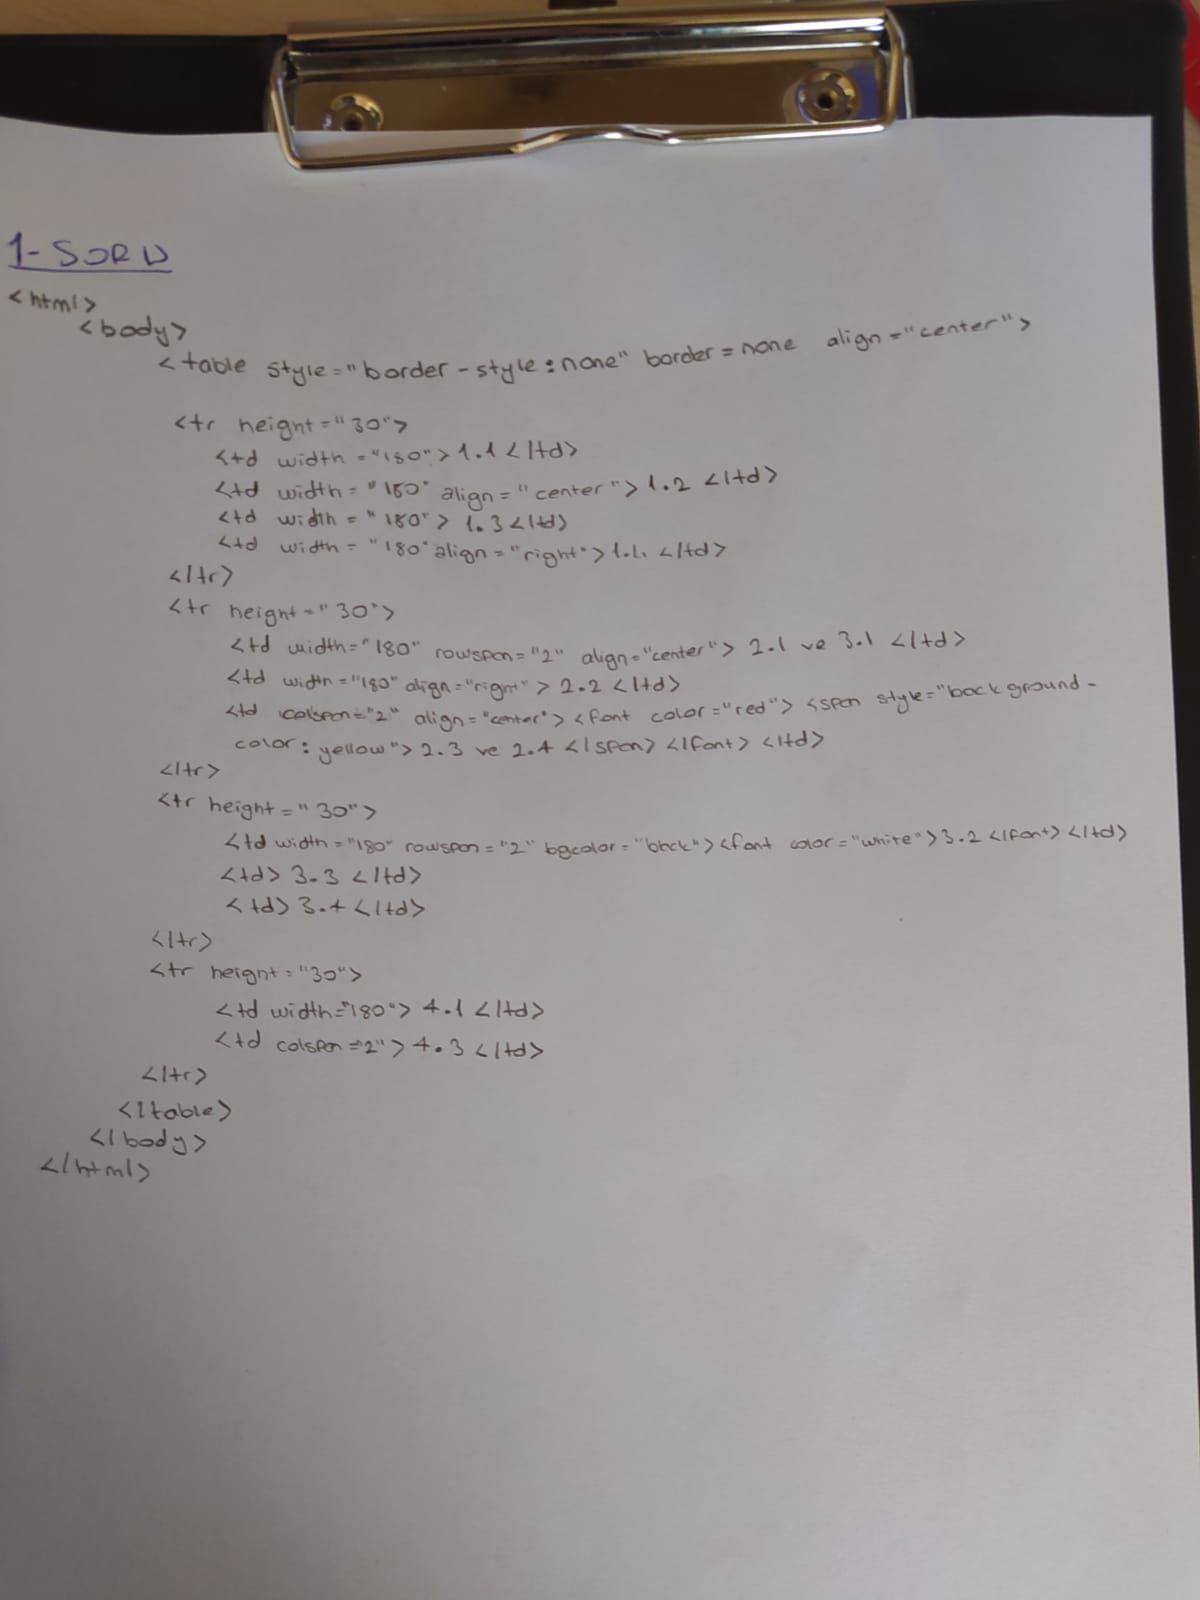 1- SORU
<html>
<body>
<table style="border-style:none" border=none align="center">
<tr height="30">
<td width="180">1.1</td>
<td width="180" align="center">1.2</td>
<td width="180">1.3</td>
<td width="180" align="right">1.4</td>
</tr>
<tr height="30">
<td width="180" rowspan="2" align="center">2.1 ve 3.1</td>
<td width="180" align="right">2.2</td>
<td colspan="2" align="center"><font color="red"><span style="background-
color:yellow">2.3 ve 2.4</span></font></td>
</tr>
<tr height="30">
<td width="180" rowspan="2" bgcolor="black"><font color="white">3.2</font></td>
<td>3.3</td>
<td>3.4</td>
</tr>
<tr height="30">
<td width="180">4.1</td>
<td colspan="2">4.3</td>
</tr>
</table>
</body>
</html>